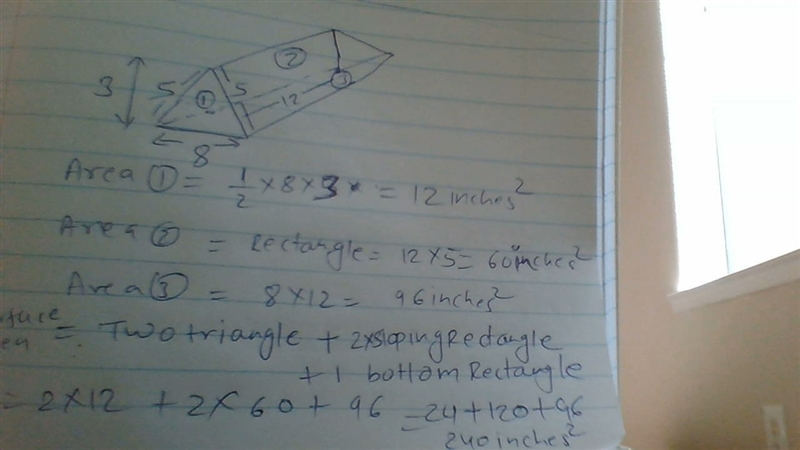 ②
3 5 ① 5 12 ③
8
Area ① = 1/2 × 8 × 3 × = 12 inches²
Area ② = Rectangle = 12 × 5 = 60 inches²
Area ③ = 8 × 12 = 96 inches²
rface = Two triangle + 2×sloping Rectangle
ea
+ 1 bottom Rectangle
= 2 × 12 + 2 × 60 + 96 = 24 + 120 + 96
240 inches²